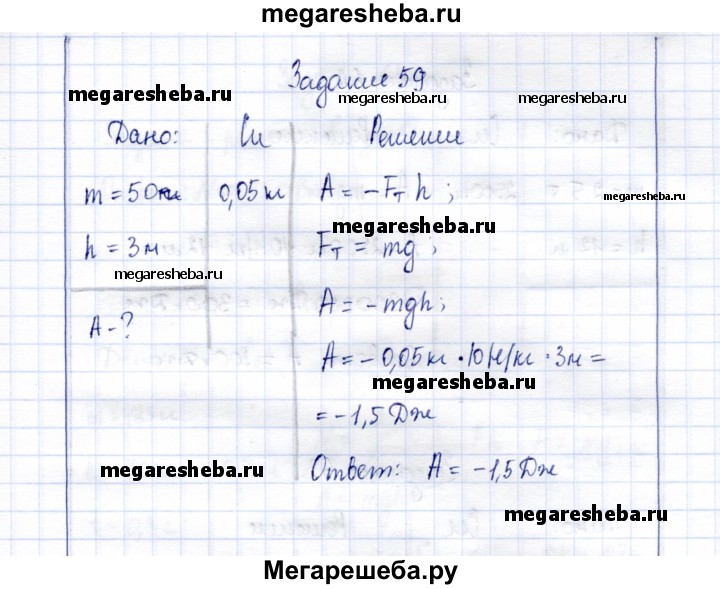 megaresheba.ru
Задание 59
megaresheba.ru
megaresheba.ru
megaresheba.ru
Дано: Си Решение
m = 50 0,05 кг A = -Fт h ;
megaresheba.ru
megaresheba.ru
h = 3 м Fт = mg ;
megaresheba.ru
A = -mgh;
A - ?
A = - 0,05 кг · 10 Н/кг · 3 м =
megaresheba.ru
= -1,5 Дж
megaresheba.ru
Ответ: A = -1,5 Дж
megaresheba.ru
Мегарешеба.ру